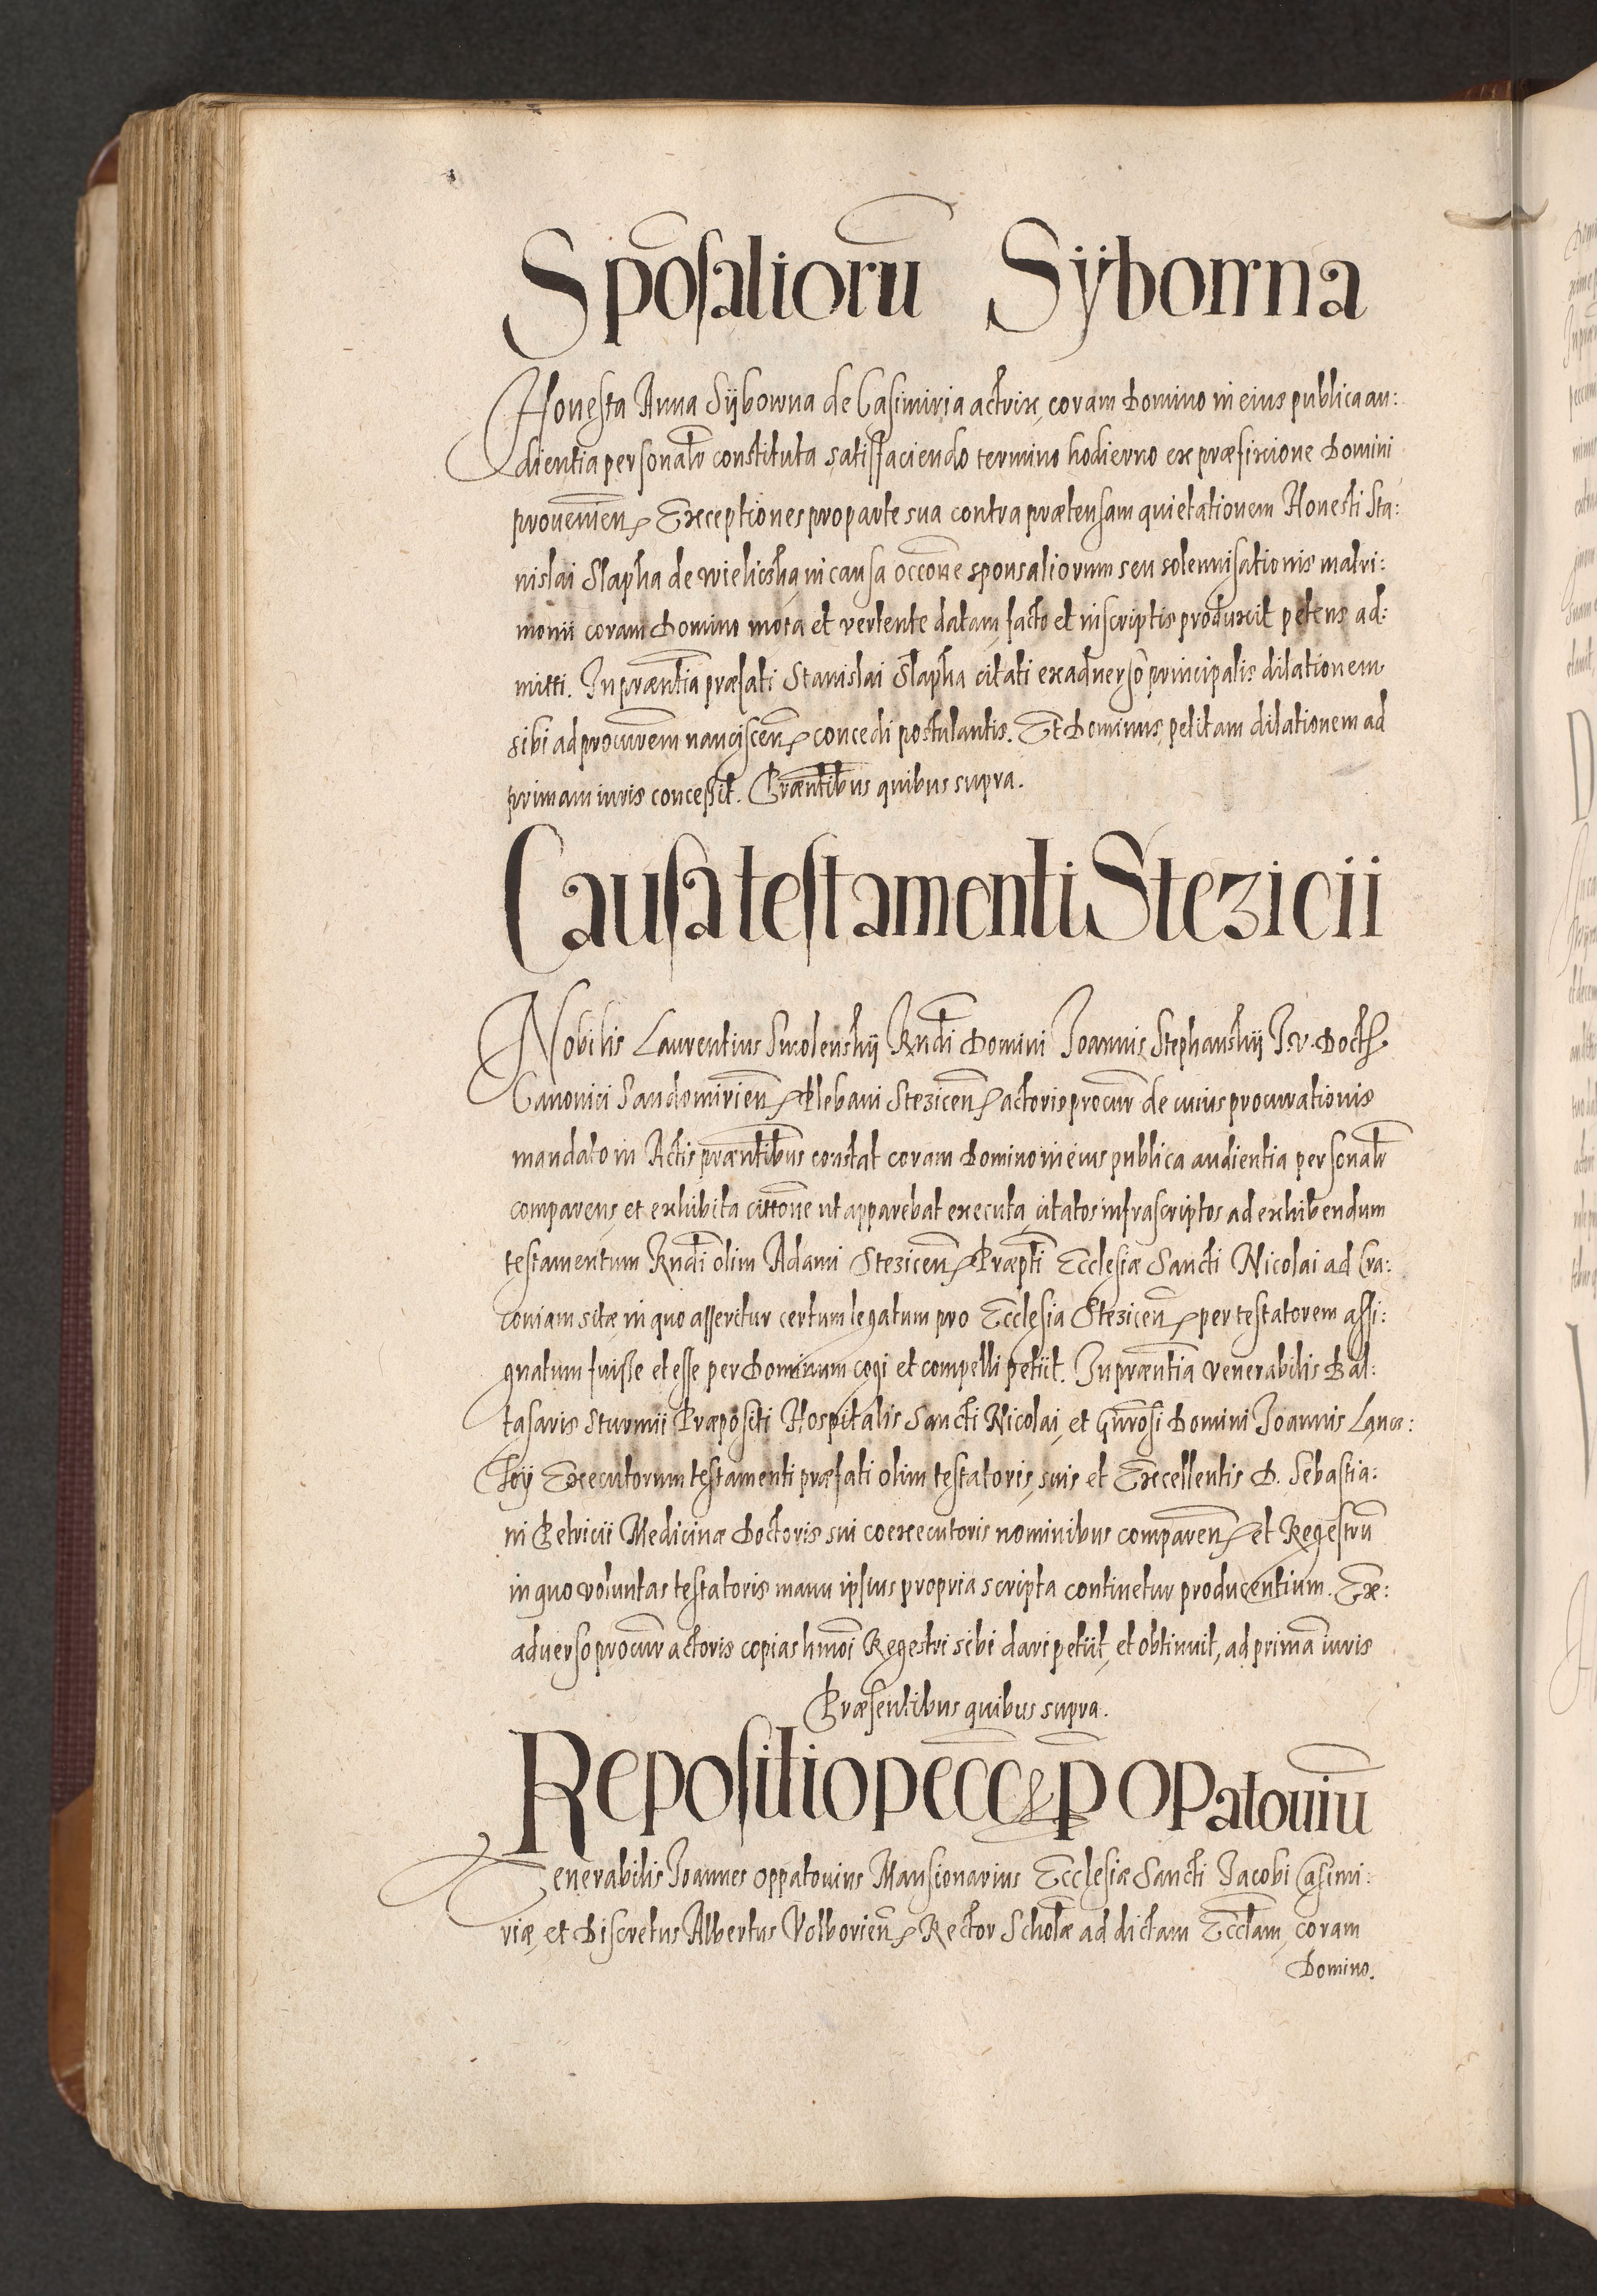 Spōsaliorū Sÿbowna
Honesta Anna Sijbowna de Casimiria actrix, coram Domino in eius publica au:
dientia personalr constituta satisfaciendo termino hodierno ex præfixione Domini
prouenien. Exceptiones pro parte sua contra prætensam quietationem Honesti Sta:
nislai Slapka de Wieliczka, in causa occone sponsaliorum seu solennisationis matri:
monii coram Domino mota et vertente datam, facto et in scriptis produxit petens ad:
mitti. In præntia præfati Stanislai Slapka citati ex aduerso principalis dilationem
sibi ad procurem nanciscen. concedi postulantis. Et Dominus petitam dilationem ad
primam iuris concessit. Præntibus quibus supra.
Causa testamenti Stezicii
Nobilis Laurentius Smolenskij Rndi Domini Joannis Stephanskij J. v. Doct.
Canonici Sandomirien. Plebani Stezicen. actoris procur de cuius procurationis
mandato in Actis præntibus constat coram Domino in eius publica audientia personalr
comparens, et exhibita cittone ut apparebat executa, citatos infrascriptos ad exhibendum
testamentum Rndi olim Adami Stezicen. Præpti Ecclesiæ Sancti Nicolai ad Cra:
couiam sitæ in quo asseritur certum legatum pro Ecclesia Stezicen. per testatorem assi:
gnatum fuisse et esse per Dominum cogi et compelli petiit. In præntia venerabilis Bal:
tasaris Sturmii Præpositi Hospitalis Sancti Nicolai, et Gnrosi Domini Joannis Lanc:
kij Executorum testamenti præfati olim testatoris, suis et Excellentis D. Sebastia:
ni Petricii Medicinæ Doctoris sui coexecutoris nominibus comparen. et Regestrū
in quo voluntas testatoris manu ipsius propria scripta continetur producentium. Ex:
aduerso procur actoris copias hmoi Regestri sibi dari petiit, et obtinuit, ad primā iuris
Præsentibus quibus supra.
Repositio pecc. p Opatouiū
Venerabilis Joannes Oppatouius Mansionarius Ecclesiæ Sancti Jacobi Casimi:
riæ, et Discretus Albertus Volborien. Rector Scholæ ad dictam Ecclam, coram
Domino.